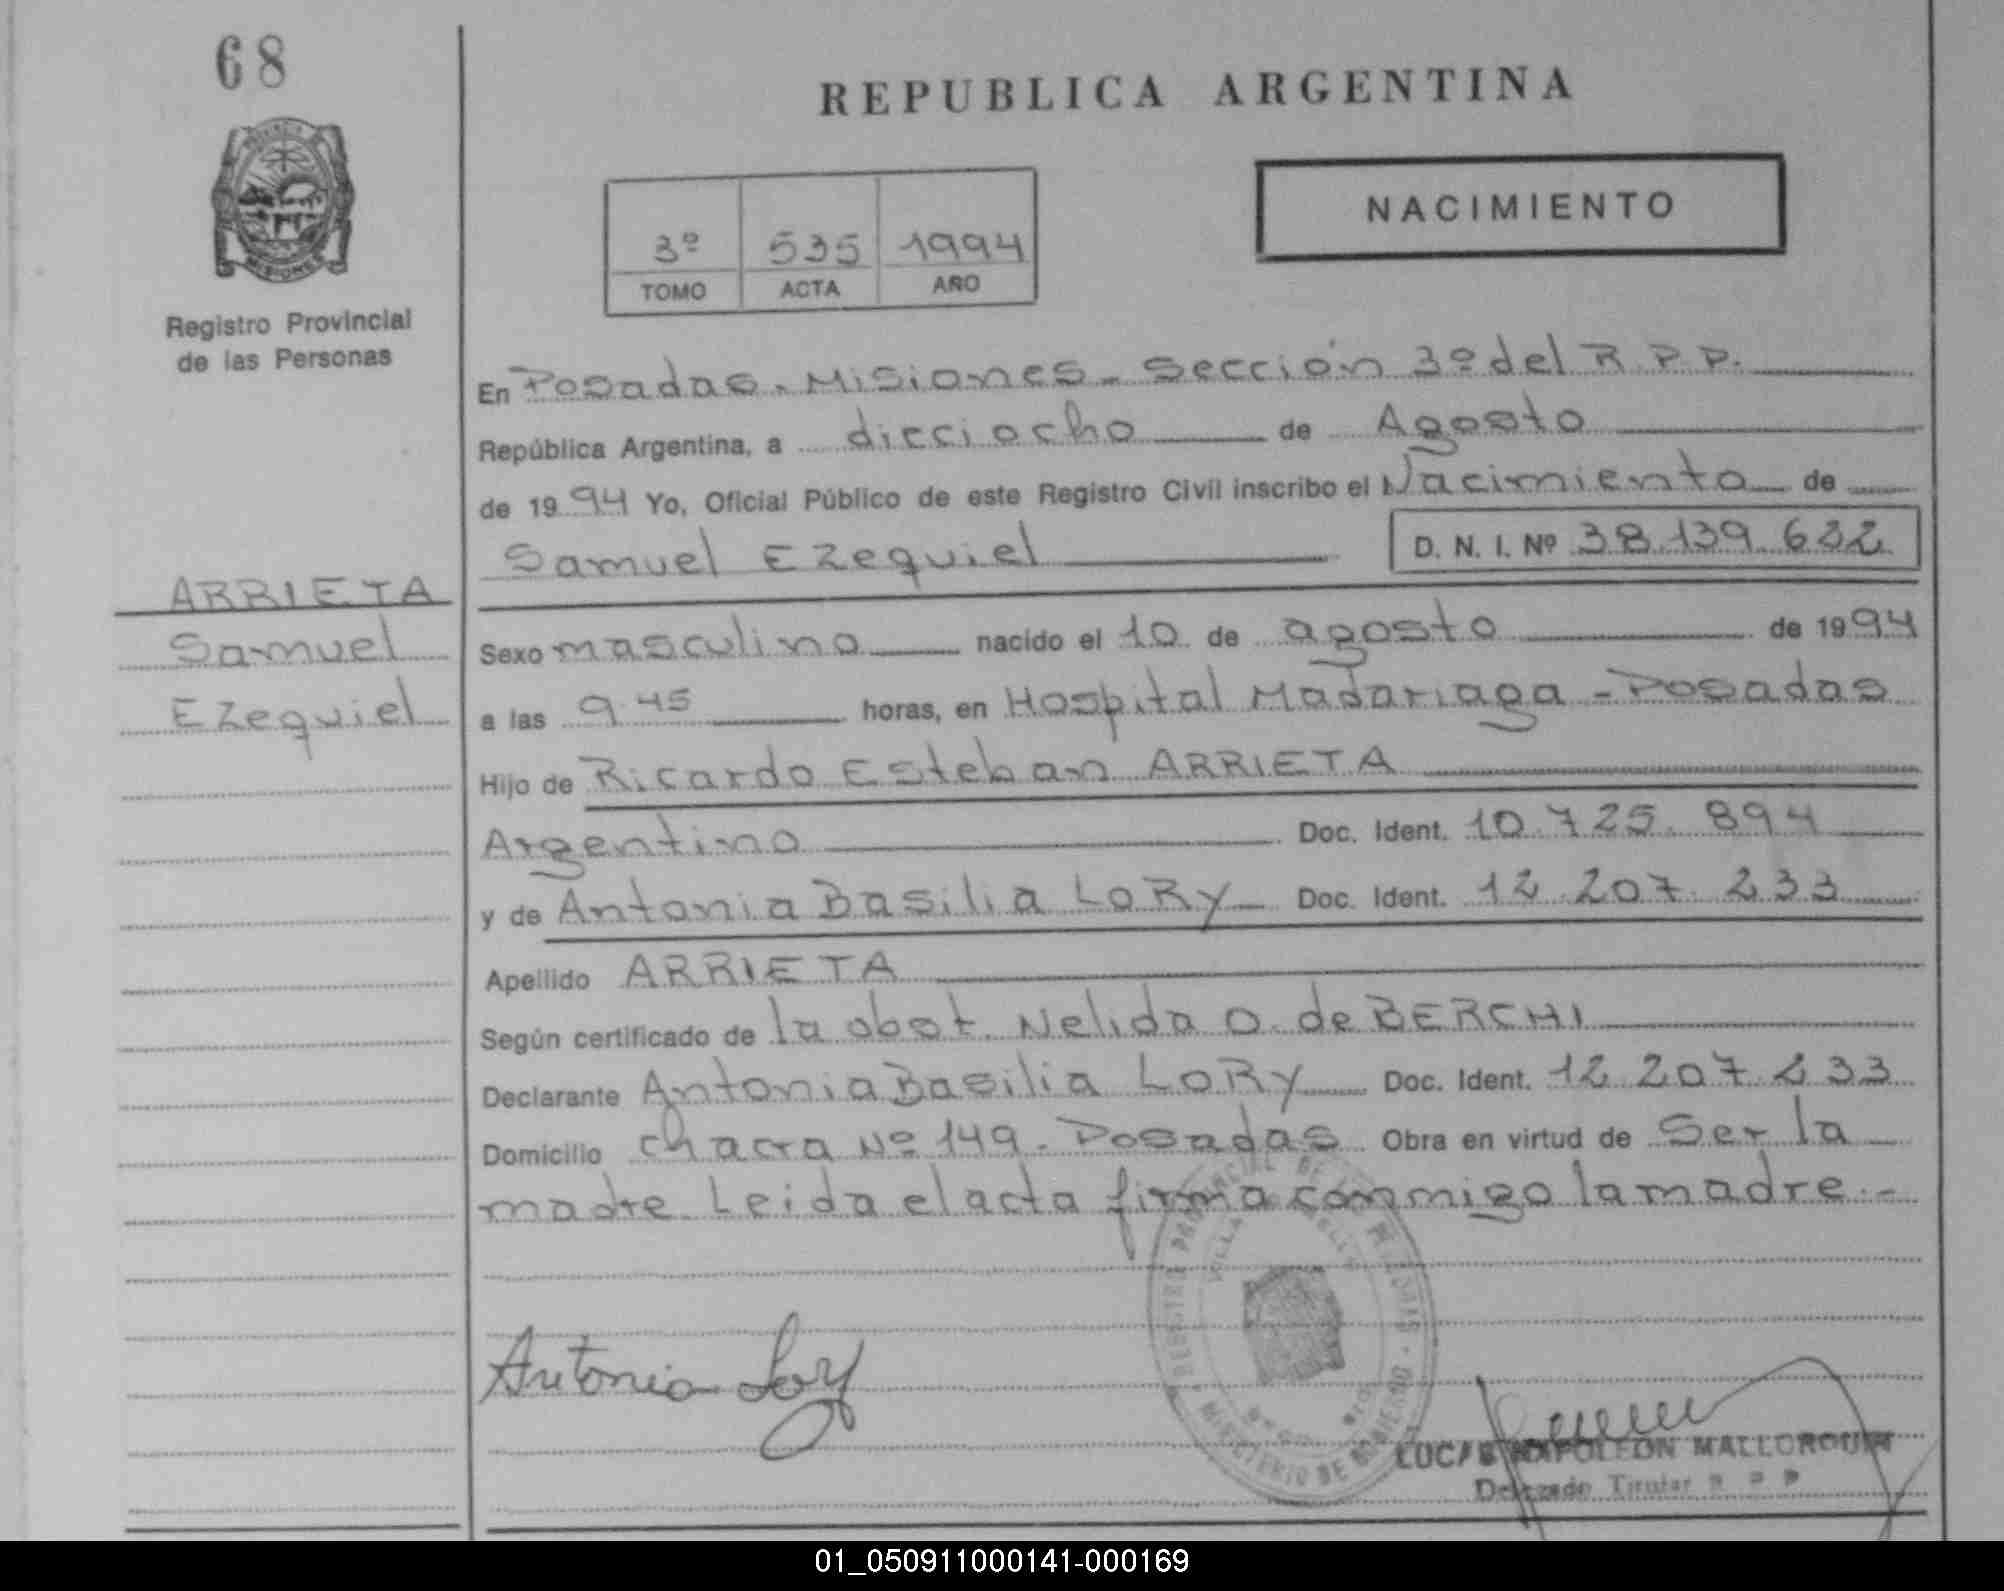 68
REPUBLICA ARGENTINA
NACIMIENTO
3º 535 1994
TOMO ACTA AÑO
PROVINCIA
MISIONES
Registro Provincial
de las Personas
En Posadas - Misiones - Sección 3º del R.P.P.
República Argentina, a dieciocho de Agosto
de 1994 Yo, Oficial Público de este Registro Civil inscribo el Nacimiento de
Samuel Ezequiel D. N. I. Nº 38.139.622
ARRIETA
Samuel
Ezequiel
Sexo masculino nacido el 10 de agosto de 1994
a las 9.45 horas, en Hospital Madariaga - Posadas
Hijo de Ricardo Esteban ARRIETA
Argentino Doc. Ident. 10.725.894
y de Antonia Basilia LORY Doc. Ident. 12.207.233
Apellido ARRIETA
Según certificado de la obst. Nelida O. de BERCHI
Declarante Antonia Basilia LORY Doc. Ident. 12.207.233
Domicilio Chacra Nº 149 - Posadas Obra en virtud de Ser la
madre Leida el acta firma conmigo la madre.-
REGISTRO PROVINCIAL DE LAS PERSONAS
MINISTERIO DE GOBIERNO
Antonia Lory
LUCAS NAPOLEON MALLORQUIN
Delegado Titular R P P
01_050911000141-000169